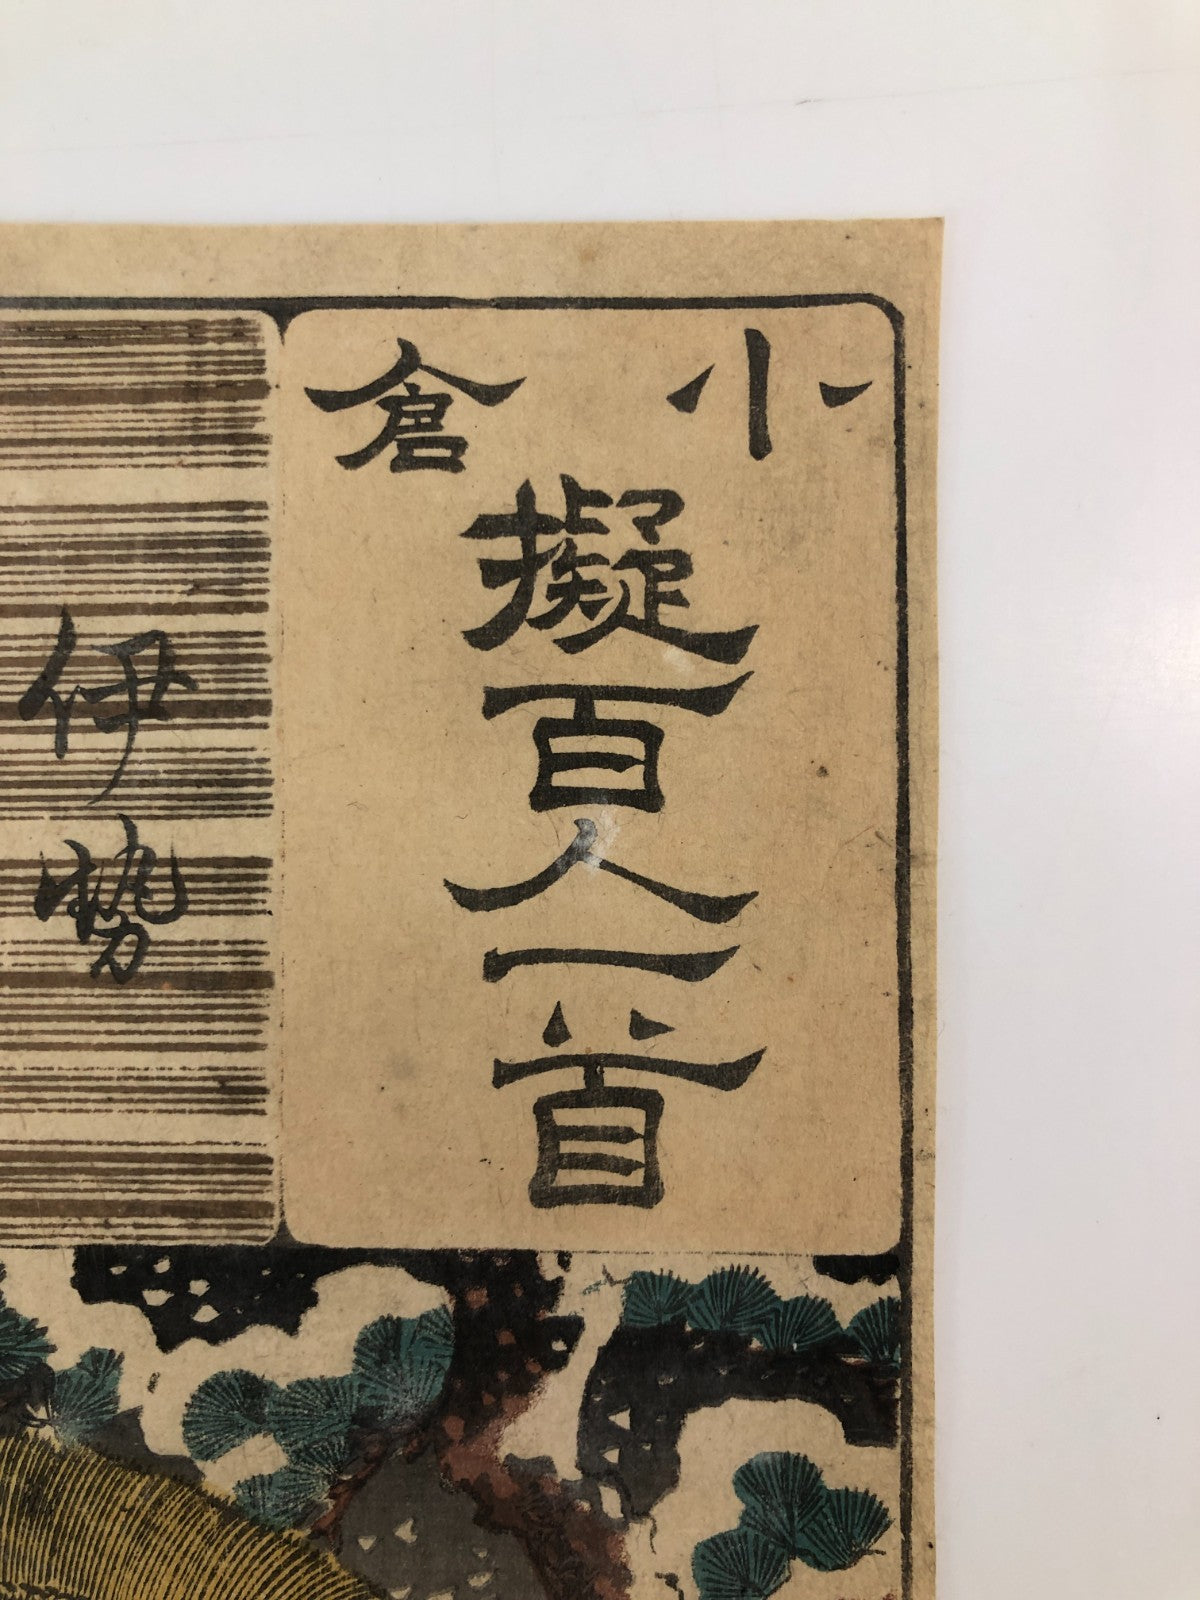 小倉
擬百人一首
伊勢